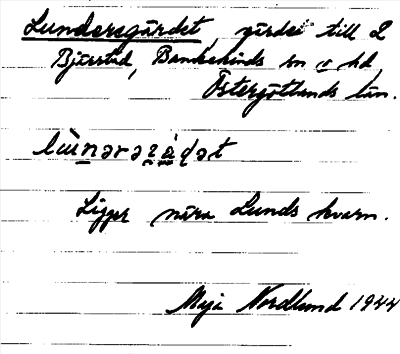 Lundersgärdet, gärde till 2
Bjärstad, Bankekinds sn o hd
Östergötlands län.
Ligger nära Lunds kvarn.
Maja Nordlund 1944